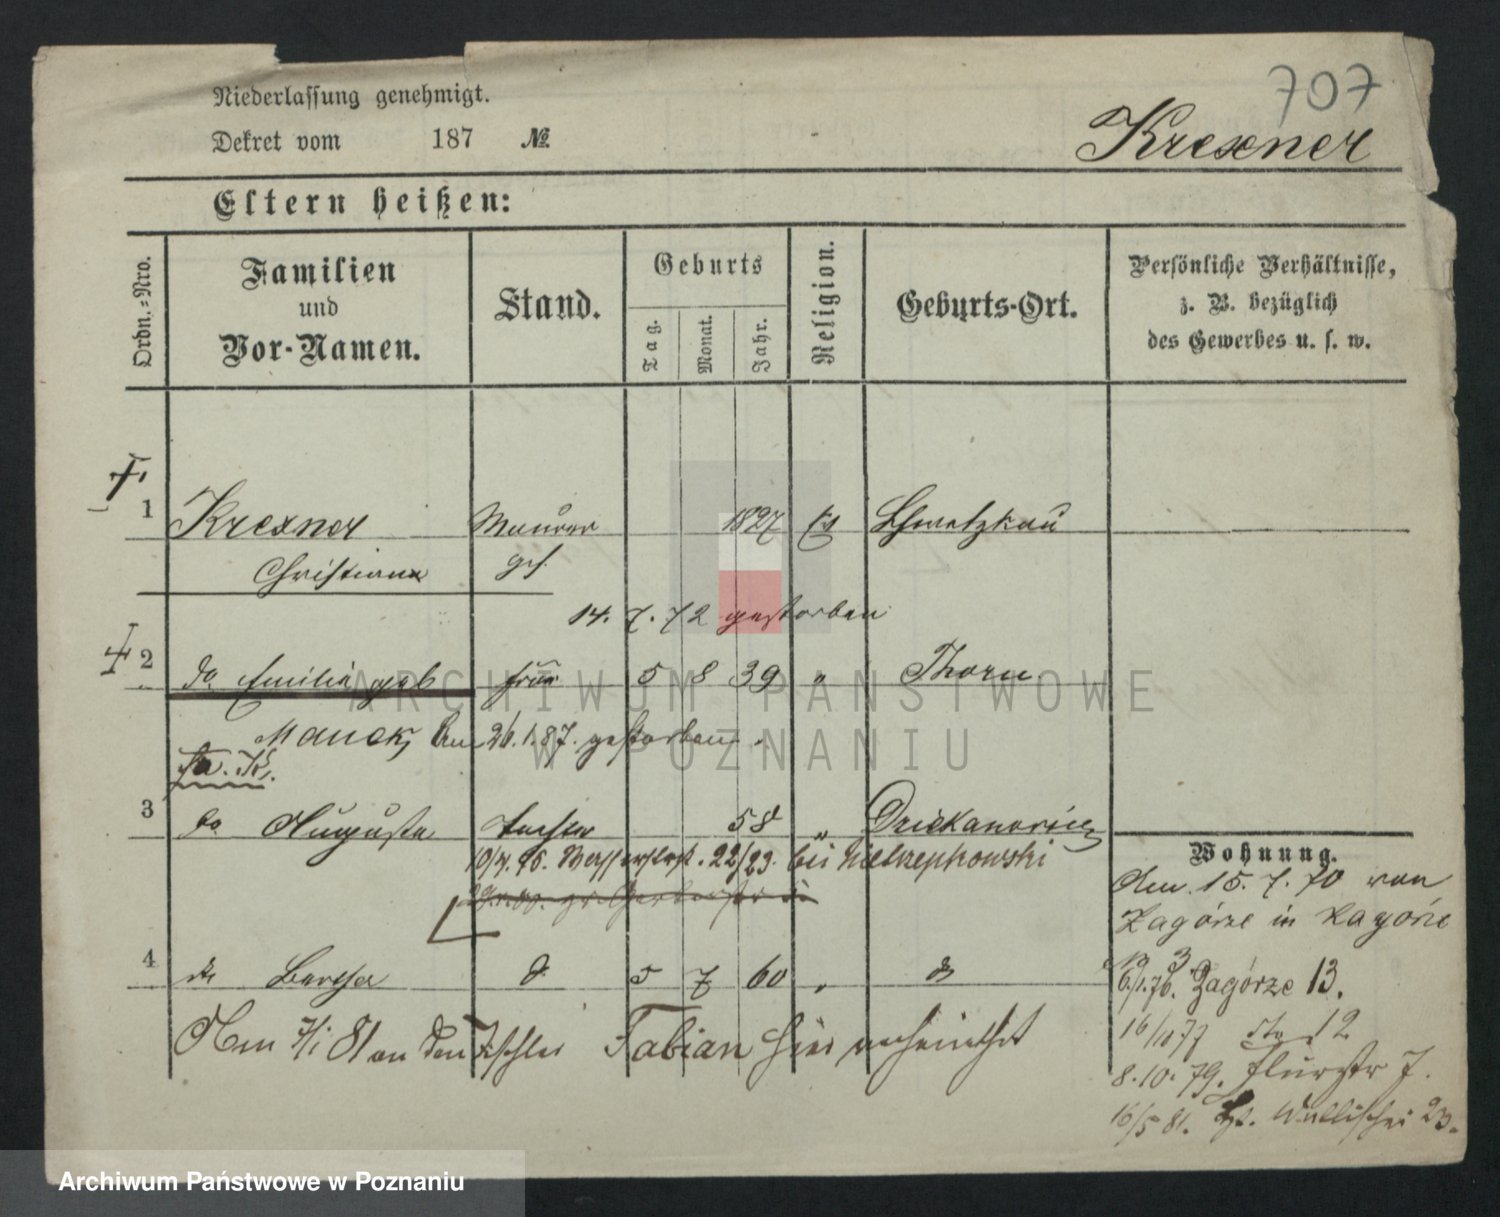 707
Niederlassung genehmigt.
Dekret vom 187 №
Krexner
Eltern heißen:
Ordn.=Nro.
Familien und Vor-Namen.
Stand.
Geburts
Tag.
Monat.
Jahr.
Religion.
Geburts-Ort.
Persönliche Verhältnisse, z. B. bezüglich des Gewerbes u. s. w.
1 Krexner Maurer 1827 Schwetzkau
Christian ges.
14. 7. 72 gestorben
2 do Emilie geb Frau 5 8 39 " Thorn
Mauck, Am 26.1.87. gestorben.
Fa. K.
3 do Auguste Tochter 58 "
22/23. bei
Wohnung.
Am 15. 7. 70 von
Zagórze in Zagórze
4 do Bertha d 5 7 60 " do
6/1.76. Zagórze 13.
Am 7/1 81 an den Tischler Fabian hier verheirathet
16/10 77 dto 12
8.10.79. Flurstr 7.
16/5 81. Wallischei 23.
ARCHIWUM PAŃSTWOWE
W POZNANIU
Archiwum Państwowe w Poznaniu